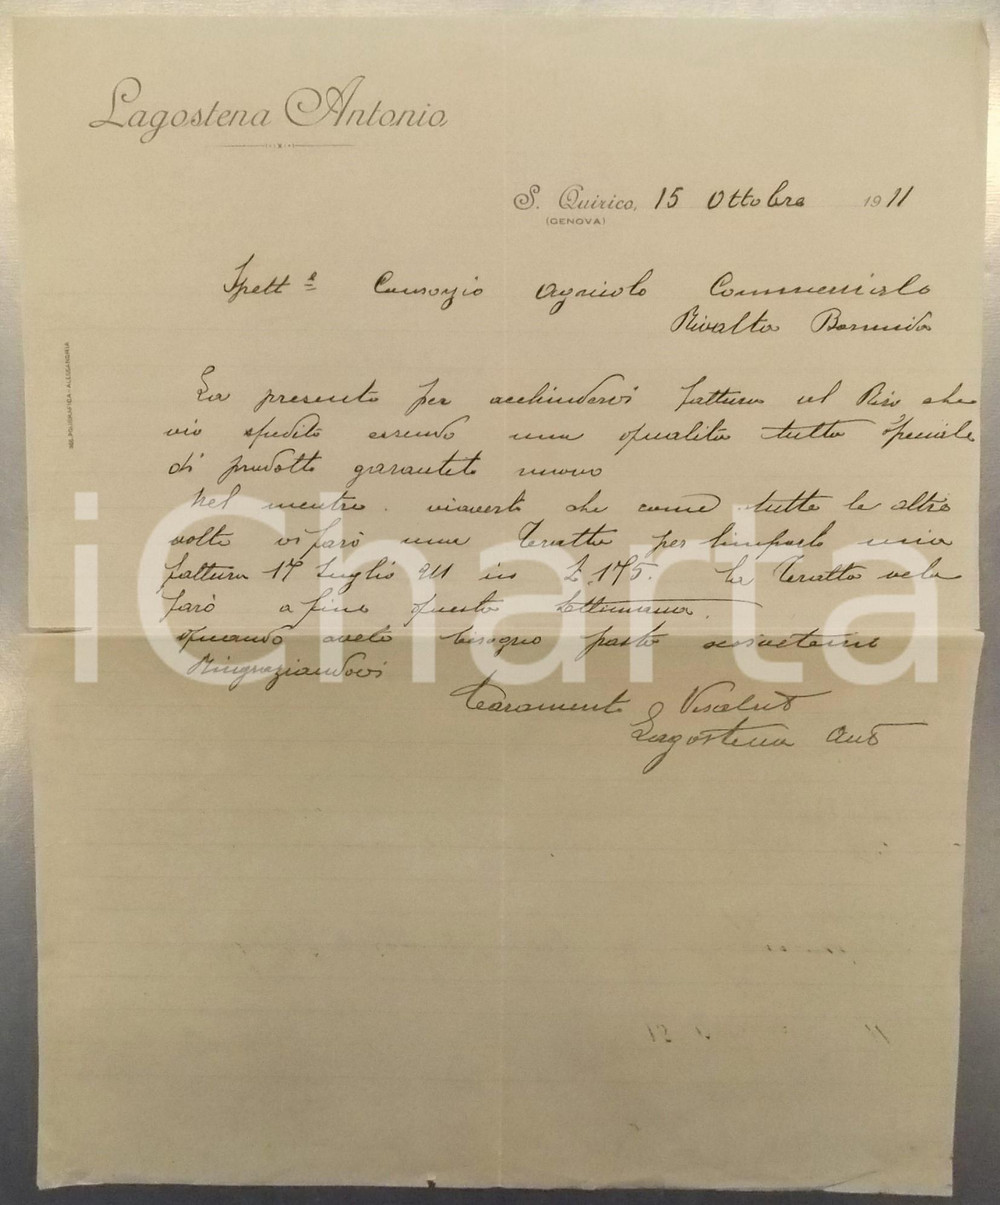 Lagostena Antonio
S. Quirico, 15 Ottobre 1911
(GENOVA)
Spett.e Consorzio Agricolo Commerciale
Rivalta Bormida
La presente per acchiudervi fattura del Riso che
vio spedito essendo una qualita tutta speciale
di prodotto garantito nuovo
Nel mentre vi averti che come tutte le altre
volte vi farò una Tratta per limporto mia
fattura 17 Luglio 911 in L 175. La Tratta vela
farò a fine questa settimana.
quando avete bisogno pasta scrivetemi
Ringraziandovi
Caramente Vi saluto
Lagostena Anto
iCharta